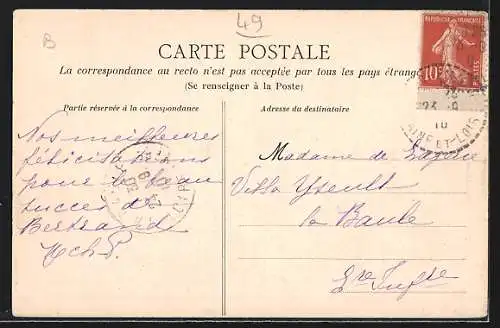 49
B
CARTE POSTALE
La correspondance au recto n'est pas acceptée par tous les pays étrang
(Se renseigner à la Poste)
Partie réservée à la correspondance
Adresse du destinataire
RÉPUBLIQUE FRANÇAISE
10
POSTES
10
MAINE-ET-LOIRE
Nos meilleures
félicitations
pour le beau
succès de
Bertrand
Madame de
Villa Yseult
la Baule